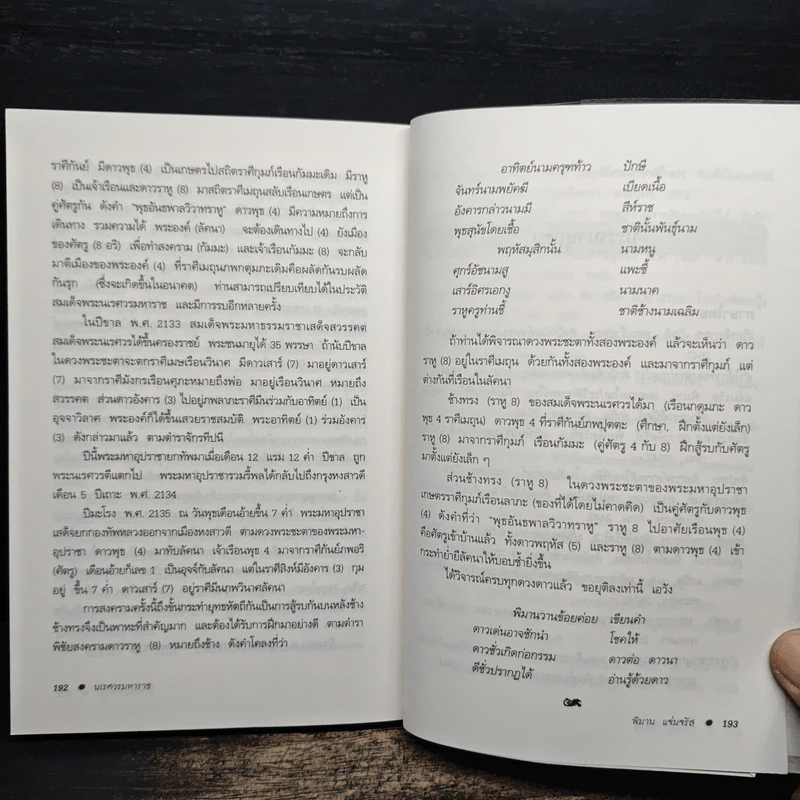 ราศีกันย์ มีดาวพุธ (4) เป็นเกษตรไปสถิตราศีกุมภ์เรือนกัมมะเดิม มีราหู
(8) เป็นเจ้าเรือนและดาวราหู (8) มาสถิตราศีเมถุนสลับเรือนเกษตร แต่เป็น
คู่ศัตรูกัน ดังคำ "พุธอันธพาลวิวาทราหู" ดาวพุธ (4) มีความหมายถึงการ
เดินทาง รวมความได้ พระองค์ (ลัคนา) จะต้องเดินทางไป (4) ยังเมือง
ของศัตรู (8 อริ) เพื่อทำสงคราม (กัมมะ) และเจ้าเรือนกัมมะ (8) จะกลับ
มาตีเมืองของพระองค์ (4) ที่ราศีเมถุนภพกดุมภะเดิมคือผลัดกันรบผลัด
กันรุก (ซึ่งจะเกิดขึ้นในอนาคต) ท่านสามารถเปรียบเทียบได้ในประวัติ
สมเด็จพระนเรศวรมหาราช และมีการรบอีกหลายครั้ง
ในปีขาล พ.ศ. 2133 สมเด็จพระมหาธรรมราชาเสด็จสวรรคต
สมเด็จพระนเรศวรได้ขึ้นครองราชย์ พระชนมายุได้ 35 พรรษา ถ้านับปีขาล
ในดวงพระชะตาจะตกราศีเมษเรือนวินาศ มีดาวเสาร์ (7) มาอยู่ดาวเสาร์
(7) มาจากราศีมังกรเรือนศุภะหมายถึงพ่อ มาอยู่เรือนวินาศ หมายถึง
สวรรคต ส่วนดาวอังคาร (3) ไปอยู่ภพลาภะราศีมีนร่วมกับอาทิตย์ (1) เป็น
อุจจาวิลาศ พระองค์ก็ได้ขึ้นเสวยราชสมบัติ พระอาทิตย์ (1) ร่วมอังคาร
(3) ดังกล่าวมาแล้ว ตามตำราจักรทีปนี
ปีนี้พระมหาอุปราชายกทัพมาเมื่อเดือน 12 แรม 12 ค่ำ ปีขาล ถูก
พระนเรศวรตีแตกไป พระมหาอุปราชารวมรี้พลได้กลับไปถึงกรุงหงสาวดี
เดือน 5 ปีเถาะ พ.ศ. 2134
ปีมะโรง พ.ศ. 2135 ณ วันพุธเดือนอ้ายขึ้น 7 ค่ำ พระมหาอุปราชา
เสด็จยกกองทัพหลวงออกจากเมืองหงสาวดี ตามดวงพระชะตาของพระมหา-
อุปราชา ดาวพุธ (4) มาทับลัคนา เจ้าเรือนพุธ 4 มาจากราศีกันย์ภพอริ
(ศัตรู) เดือนอ้ายก็เลข 1 เป็นอุจจ์กับลัคนา แต่ในราศีสิงห์มีอังคาร (3) กุม
อยู่ ขึ้น 7 ค่ำ ดาวเสาร์ (7) อยู่ราศีมีนภพวินาศลัคนา
การสงครามครั้งนี้ถึงขั้นกระทำยุทธหัตถีกันเป็นการสู้รบกันบนหลังช้าง
ช้างทรงจึงเป็นพาหะที่สำคัญมาก และต้องได้รับการฝึกมาอย่างดี ตามตำรา
พิชัยสงครามดาวราหู (8) หมายถึงช้าง ดังคำโคลงที่ว่า
192 ● นเรศวรมหาราช
อาทิตย์นามครุฑท้าว ปักษี
จันทร์นามพยัคฆี เบียดเนื้อ
อังคารกล่าวนามมี สีห์ราช
พุธสุนัขโดยเชื้อ ชาตินั้นพันธุ์นาม
พฤหัสมุสิกนั้น นามหนู
ศุกร์อัชนามสู แพะชี้
เสาร์อิศรเอกงู นามนาค
ราหูครูท่านชี้ ชาติช้างนามเฉลิม
ถ้าท่านได้พิจารณาดวงพระชะตาทั้งสองพระองค์ แล้วจะเห็นว่า ดาว
ราหู (8) อยู่ในราศีเมถุน ด้วยกันทั้งสองพระองค์ และมาจากราศีกุมภ์ แต่
ต่างกันที่เรือนในลัคนา
ช้างทรง (ราหู 8) ของสมเด็จพระนเรศวรได้มา (เรือนกดุมภะ ดาว
พุธ 4 ราศีเมถุน) ดาวพุธ 4 ที่ราศีกันย์ภพปุตตะ (ศึกษา, ฝึกตั้งแต่ยังเล็ก)
ราหู (8) มาจากราศีกุมภ์ เรือนกัมมะ (คู่ศัตรู 4 กับ 8) ฝึกสู้รบกับศัตรู
มาตั้งแต่ยังเล็ก ๆ
ส่วนช้างทรง (ราหู 8) ในดวงพระชะตาของพระมหาอุปราชา
เกษตรราศีกุมภ์เรือนลาภะ (ของที่ได้โดยไม่คาดคิด) เป็นคู่ศัตรูกับดาวพุธ
(4) ดังคำที่ว่า "พุธอันธพาลวิวาทราหู" ราหู 8 ไปอาศัยเรือนพุธ (4)
คือศัตรูเข้าบ้านแล้ว ทั้งดาวพฤหัส (5) และราหู (8) ตามดาวพุธ (4) เข้า
กระทำย่ำยีลัคนาให้บอบช้ำยิ่งขึ้น
ได้วิจารณ์ครบทุกดวงดาวแล้ว ขอยุติลงเท่านี้ เอวัง
พิมานวานข้อยค่อย เขียนคำ
ดาวเด่นอาจชักนำ โชคให้
ดาวชั่วเกิดก่อกรรม ดาวต่อ ดาวนา
ดีชั่วปรากฏได้ อ่านรู้ด้วยดาว
พิมาน แจ่มจรัส ● 193